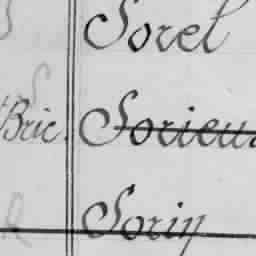 Sorel
Bric. Sorieu
Sorin